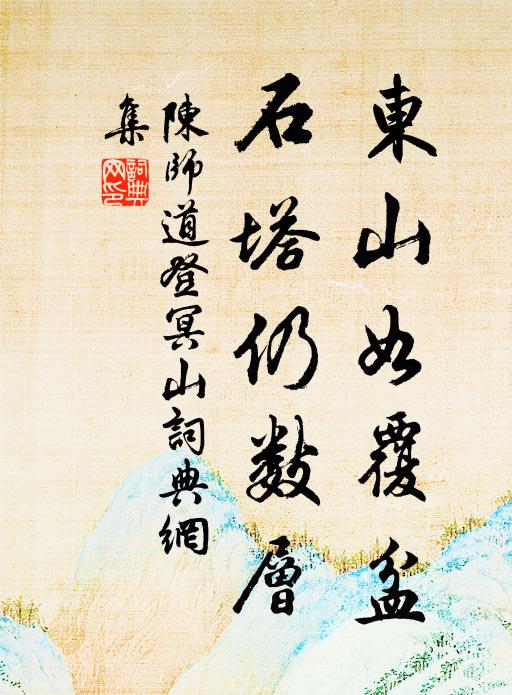 東山如覆盆
石塔仍數層
陳師道登冥山詞典網
集
詞典網印